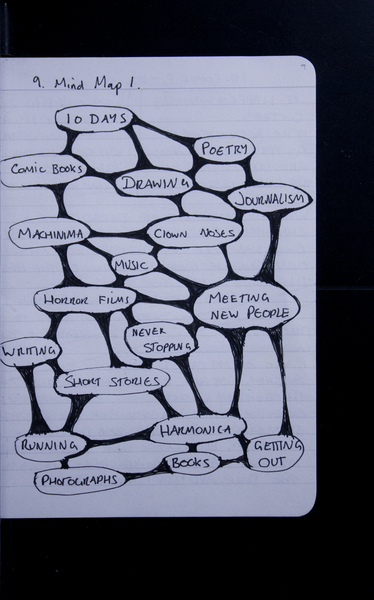 9. Mind Map 1.
10 DAYS
POETRY
COMIC BOOKS
DRAWING
JOURNALISM
MACHINIMA
CLOWN NOSES
MUSIC
HORROR FILMS
MEETING
NEW PEOPLE
NEVER
STOPPING
WRITING
SHORT STORIES
HARMONICA
RUNNING
GETTING
OUT
BOOKS
PHOTOGRAPHS